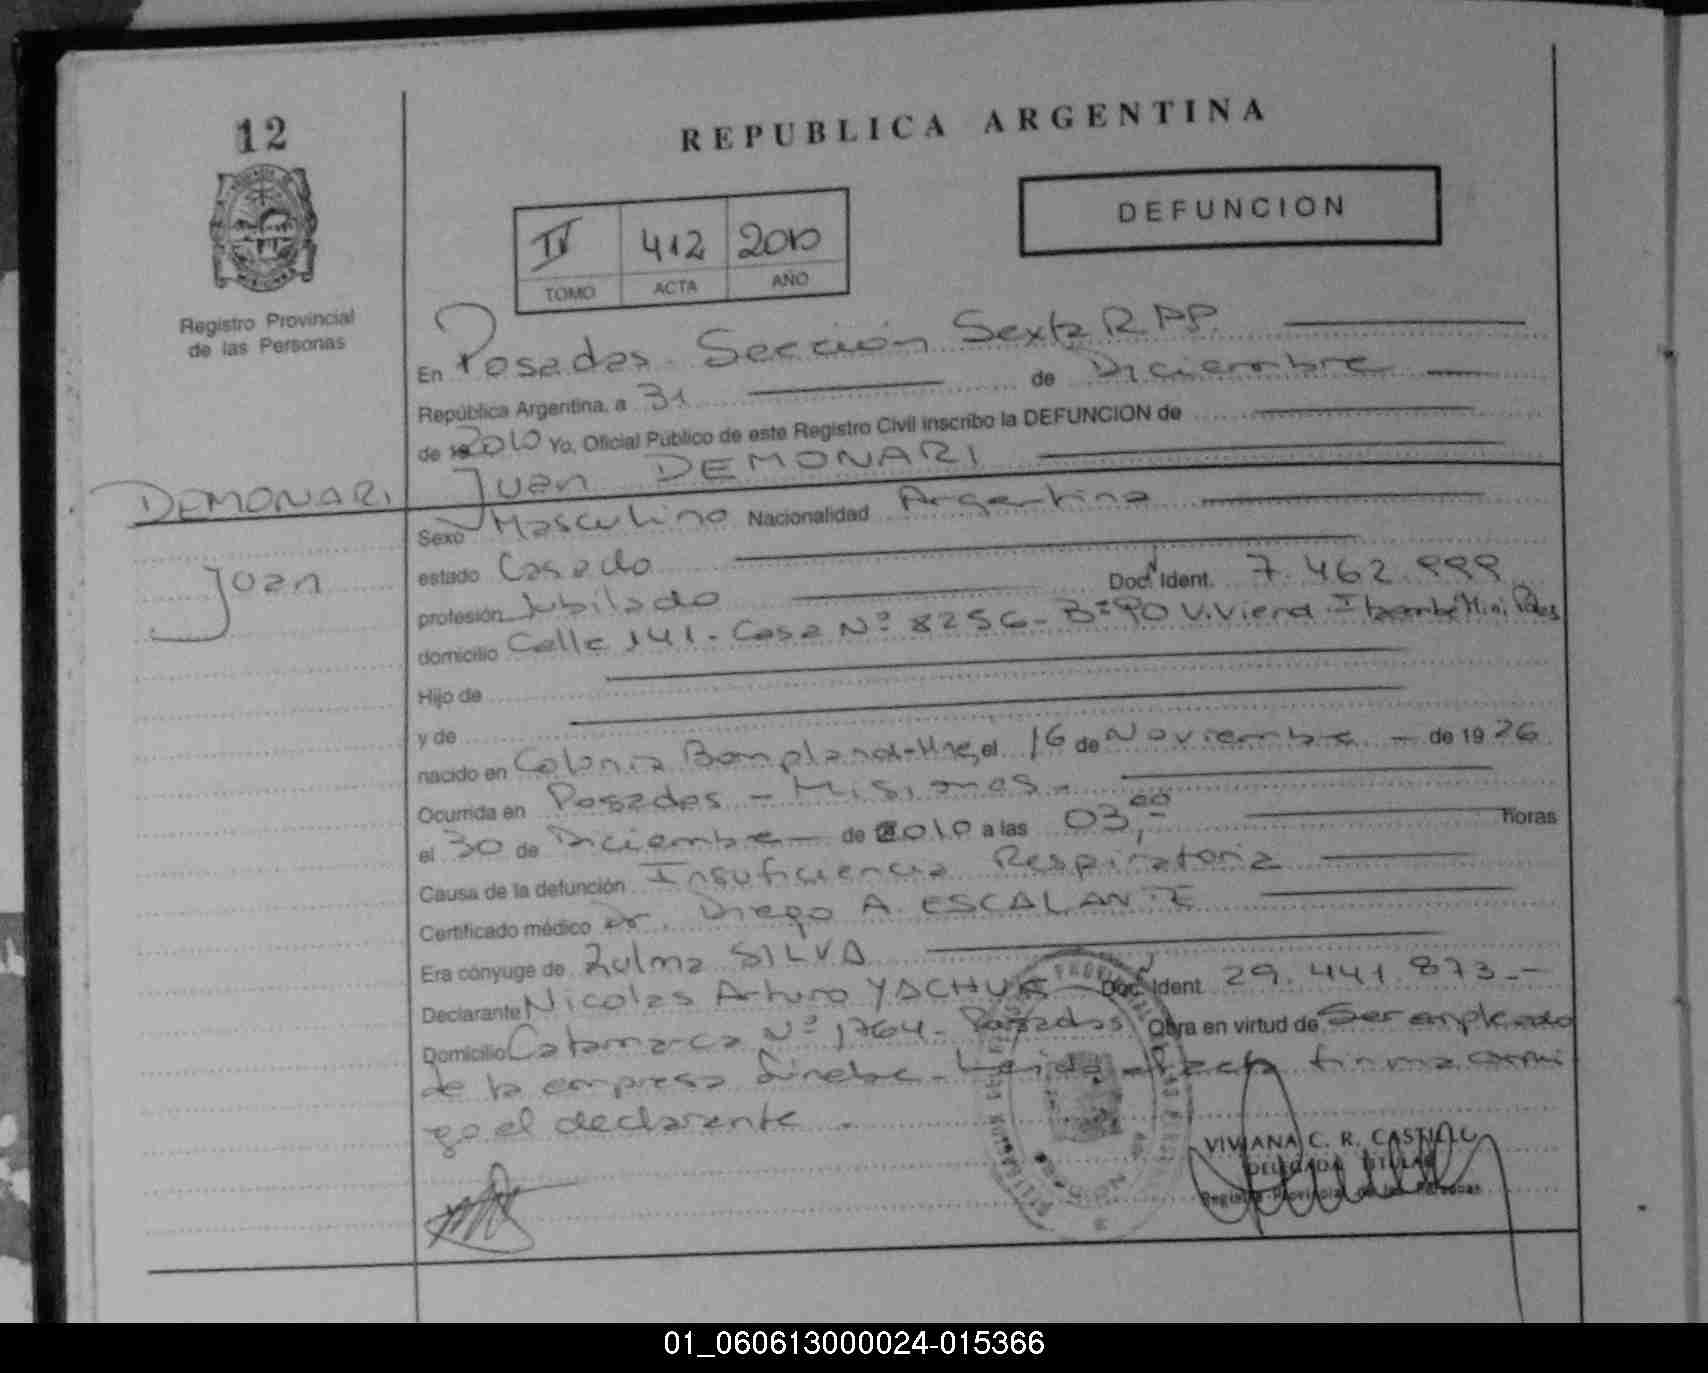 12
REPUBLICA ARGENTINA
DEFUNCION
IV 412 2010
TOMO ACTA AÑO
Registro Provincial
de las Personas
En Posadas. Sección Sexta R.P.P.
República Argentina, a 31 de Diciembre
de 2010 Yo, Oficial Público de este Registro Civil inscribo la DEFUNCION de
Juan DEMONARI
DEMONARI
Juan
Sexo Masculino Nacionalidad Argentina
estado Casado
profesión Jubilado Doc. Ident. 7.462.999
domicilio Calle 141 - Casa Nº 8256 - Bº 90 Vivienda
Hijo de
y de
nacido en Colonia Bompland-Mnes, el 16 de Noviembre - de 1926
Ocurrida en Posadas - Misiones.
el 30 de Diciembre - de 2010 a las 03,00 horas
Causa de la defunción Insuficiencia Respiratoria
Certificado médico Dr. Diego A. ESCALANTE
Era cónyuge de Zulma SILVA
Declarante Nicolas Arturo Doc. Ident. 29.441.873.-
Domicilio Catamarca Nº 1764 - Posadas Obra en virtud de Ser empleado
de la empresa Leida acta firma conmi
go el declarante.
VIVIANA C. R. CASTILLO
DELEGADA TITULAR
Registro Provincial de las Personas
01_060613000024-015366